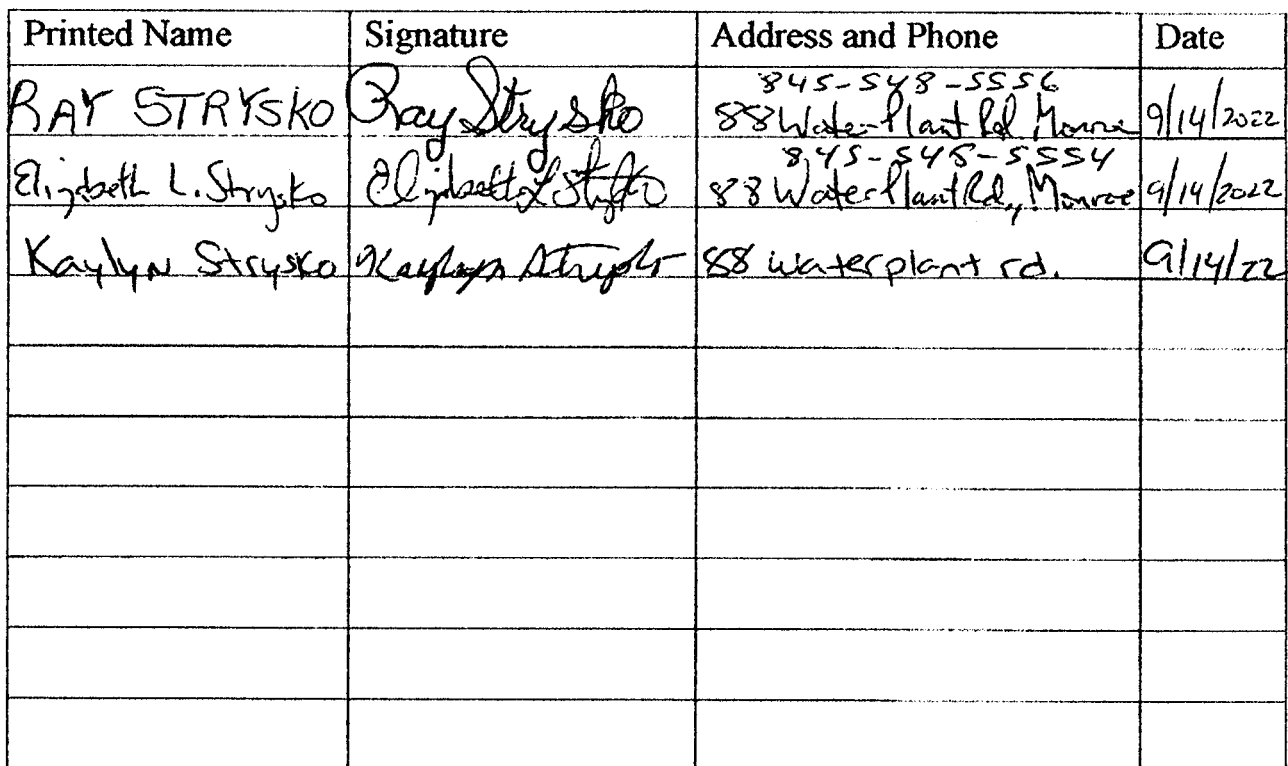 Printed Name Signature Address and Phone Date
845-548-5556
RAY STRYSKO Ray Strysko 88 Water Plant Rd Monroe 9/14/2022
845-548-5554
Elizabeth L. Strysko Elizabeth L Strysko 88 Water Plant Rd, Monroe 9/14/2022
Kaylyn Strysko Kaylyn Strysko 88 waterplant rd. 9/14/22